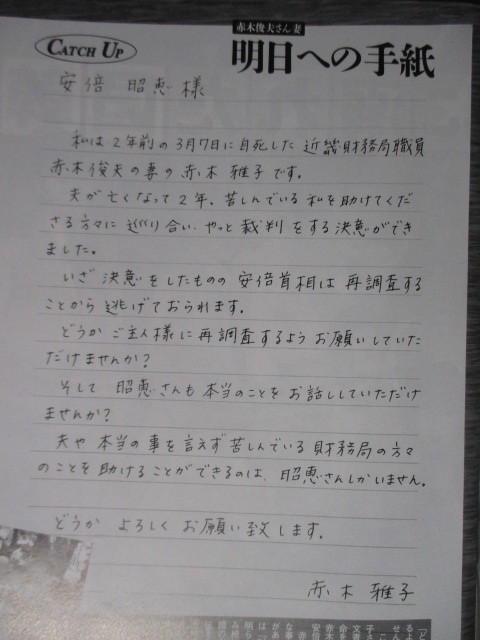 赤木俊夫さん妻
CATCH UP
明日への手紙
安倍 昭恵様
私は2年前の3月7日に自死した近畿財務局職員
赤木俊夫の妻の赤木雅子です。
夫が亡くなって2年。苦しんでいる私を助けてくだ
さる方々に巡り合い、やっと裁判をする決意ができ
ました。
いざ決意をしたものの安倍首相は再調査する
ことから逃げておられます。
どうかご主人様に再調査するようお願いしていた
だけませんか?
そして昭恵さんも本当のことをお話ししていただけ
ませんか?
夫や本当の事を言えず苦しんでいる財務局の方々
のことを助けることができるのは、昭恵さんしかいません。
どうかよろしくお願い致します。
赤木 雅子